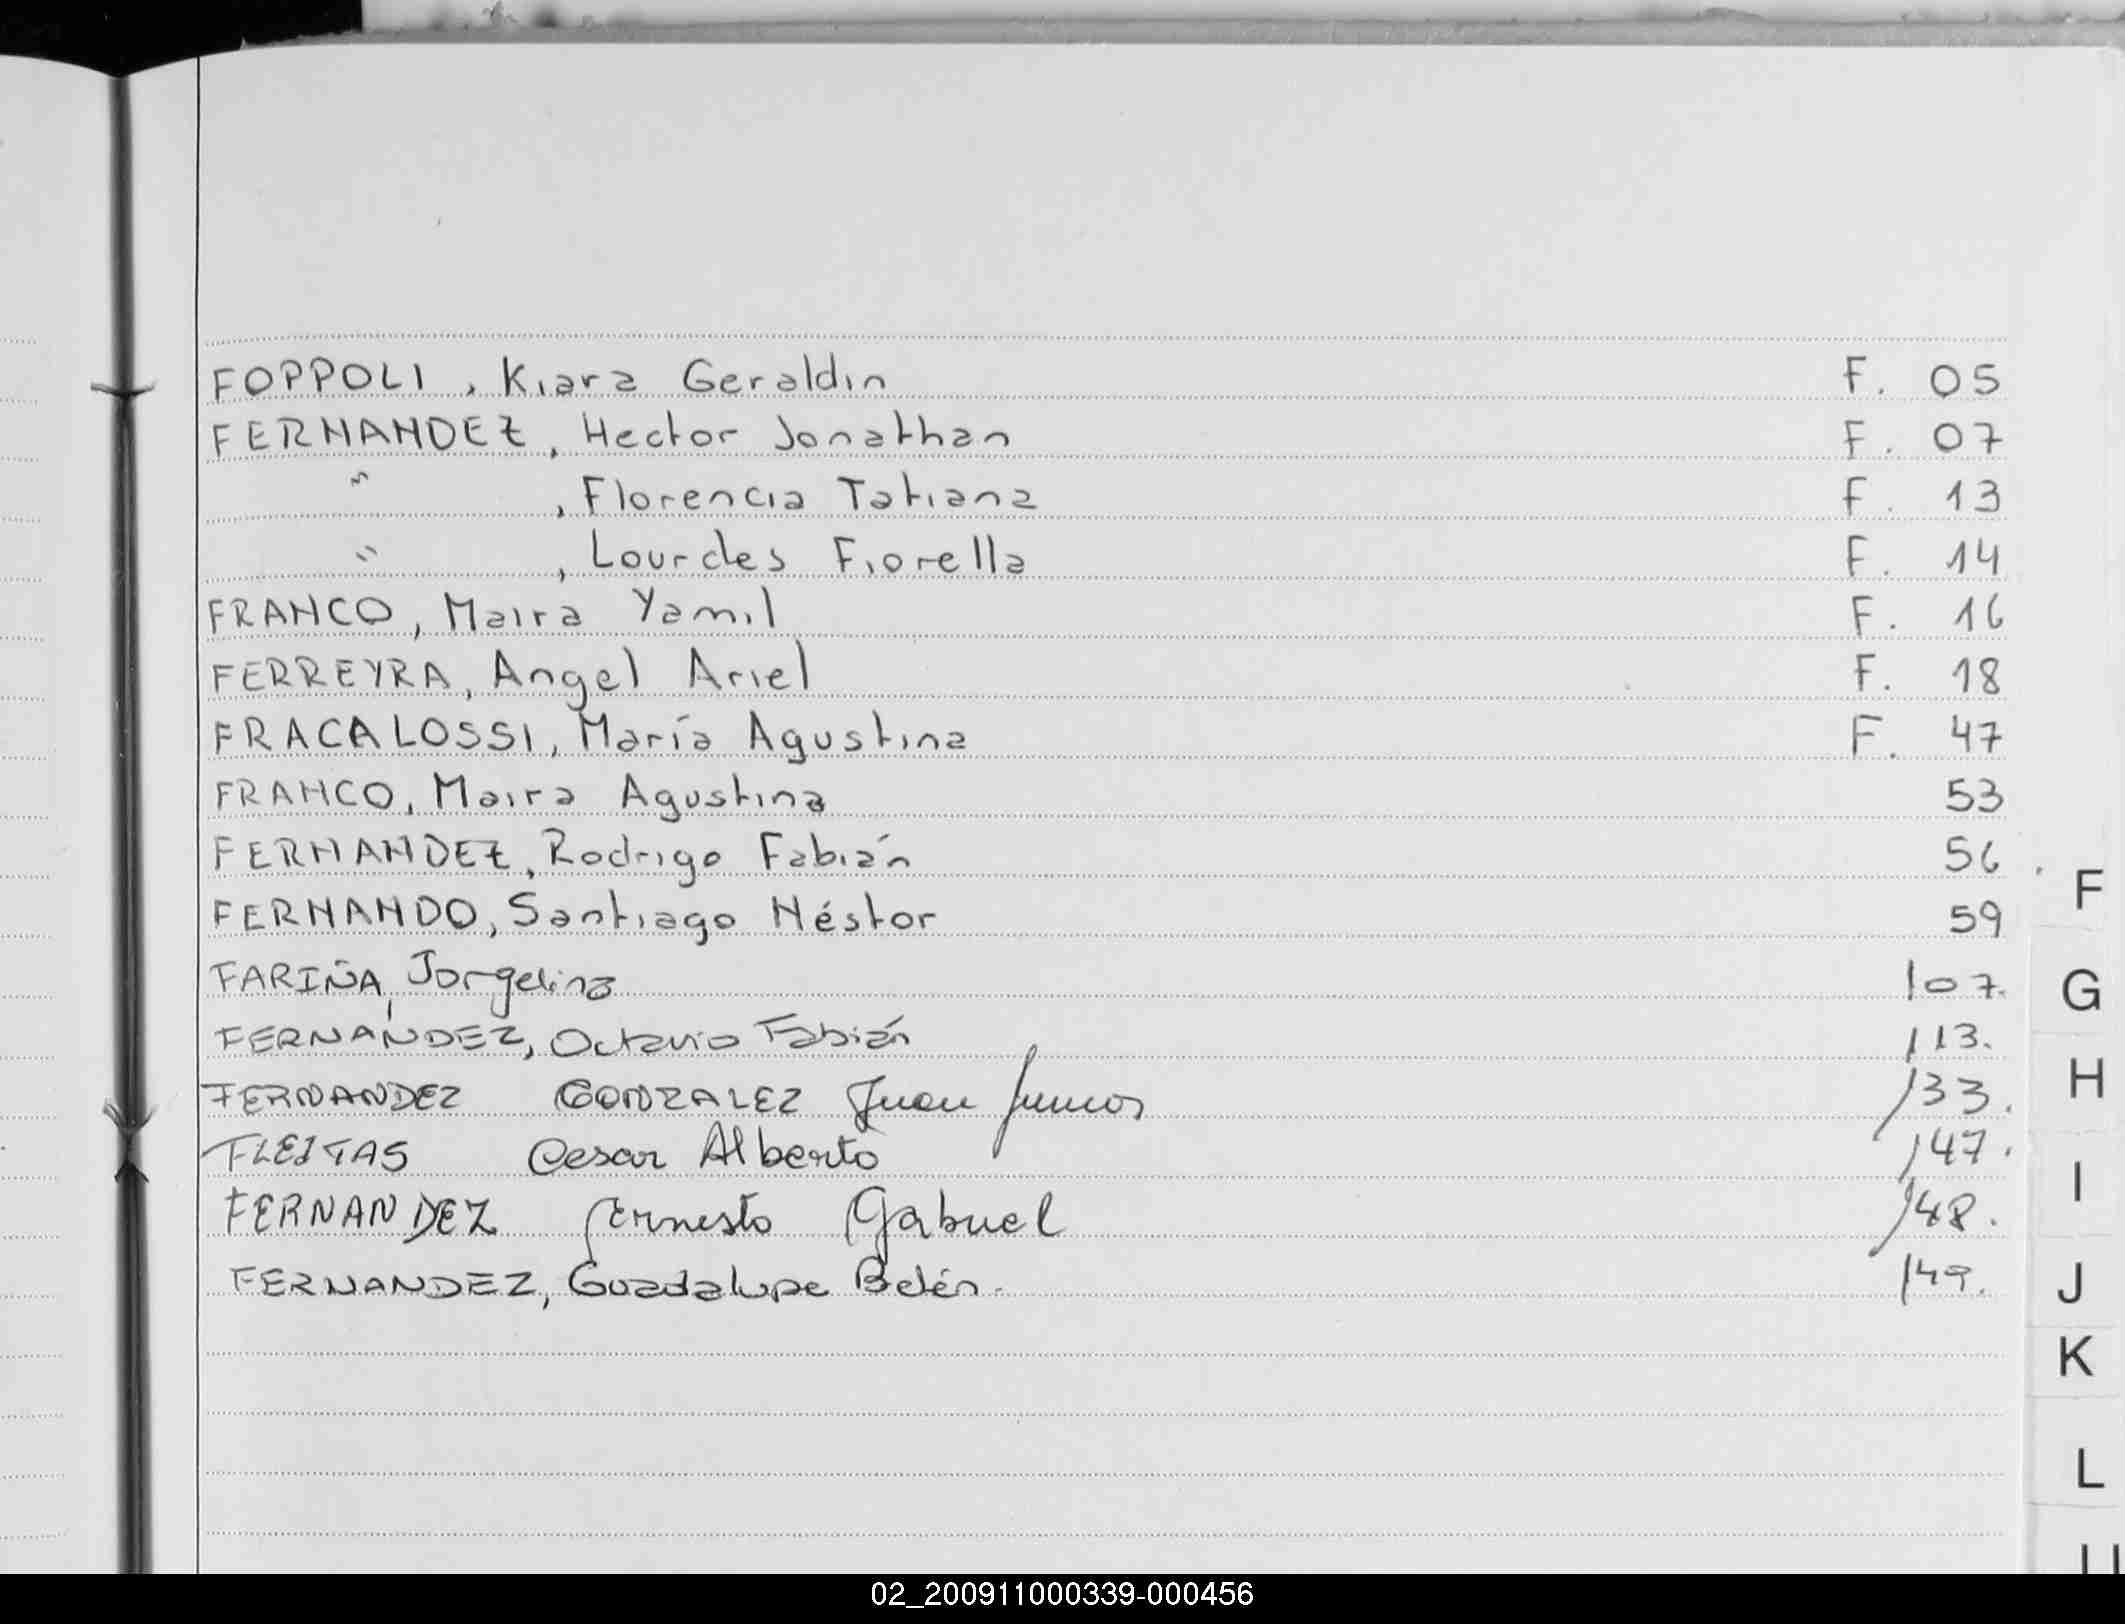 FOPPOLI, Kiara Geraldin F. 05
FERNANDEZ, Hector Jonathan F. 07
" , Florencia Tatiana F. 13
" , Lourdes Fiorella F. 14
FRANCO, Maira Yamil F. 16
FERREYRA, Angel Ariel F. 18
FRACALOSSI, María Agustina F. 47
FRANCO, Maira Agustina 53
FERNANDEZ, Rodrigo Fabián 56
FERNANDO, Santiago Néstor 59
FARIÑA, Jorgelina 107.
FERNANDEZ, Octavio Fabián 113.
FERNANDEZ GONZALEZ Juan 133.
FLEITAS Cesar Alberto 147.
FERNANDEZ Ernesto Gabriel 148.
FERNANDEZ, Guadalupe Belén. 149.
F
G
H
I
J
K
L
02_200911000339-000456